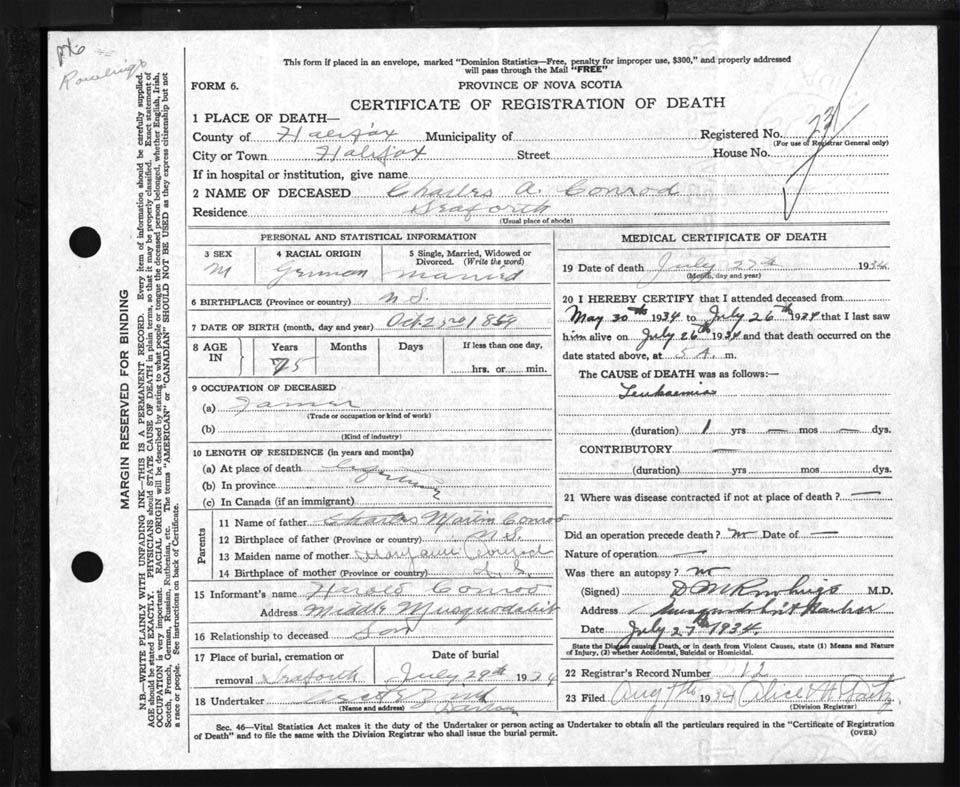 Rowlings
This form if placed in an envelope, marked "Dominion Statistics—Free, penalty for improper use, $300," and properly addressed
will pass through the Mail "FREE"
FORM 6.
PROVINCE OF NOVA SCOTIA
CERTIFICATE OF REGISTRATION OF DEATH
1 PLACE OF DEATH—
County of Halifax Municipality of Registered No. 23
(For use of Registrar General only)
City or Town Halifax Street House No.
If in hospital or institution, give name
2 NAME OF DECEASED Charles A. Conrod
Residence Seaforth
(Usual place of abode)
PERSONAL AND STATISTICAL INFORMATION
3 SEX 4 RACIAL ORIGIN 5 Single, Married, Widowed or
Divorced. (Write the word)
M German married
6 BIRTHPLACE (Province or country) N S.
7 DATE OF BIRTH (month, day and year) Oct 23rd 1859
8 AGE IN Years Months Days If less than one day,
75 hrs. or min.
9 OCCUPATION OF DECEASED
(a) Farmer
(Trade or occupation or kind of work)
(b)
(Kind of industry)
10 LENGTH OF RESIDENCE (in years and months)
(a) At place of death Lifetime
(b) In province
(c) In Canada (if an immigrant)
Parents
11 Name of father Charles Martin Conrod
12 Birthplace of father (Province or country) N S.
13 Maiden name of mother Mary Jane Conrod
14 Birthplace of mother (Province or country) N. S.
15 Informant's name Harold Conrod
Address Middle Musquodoboit
16 Relationship to deceased Son
17 Place of burial, cremation or Date of burial
removal Seaforth July 29th 1934
18 Undertaker
(Name and address)
MEDICAL CERTIFICATE OF DEATH
19 Date of death July 27th 1934
(Month, day and year)
20 I HEREBY CERTIFY that I attended deceased from
May 30th 1934 to July 26th 1934 that I last saw
him alive on July 26th 1934 and that death occurred on the
date stated above, at 5 A. m.
The CAUSE of DEATH was as follows:—
Leukaemia
(duration) 1 yrs — mos — dys.
CONTRIBUTORY —
(duration) yrs mos dys.
21 Where was disease contracted if not at place of death? —
Did an operation precede death? no Date of —
Nature of operation —
Was there an autopsy? no
(Signed) D M Rowlings M.D.
Address Musquodoboit Harbor
Date July 27th 1934.
State the Disease causing Death, or in death from Violent Causes, state (1) Means and Nature
of Injury, (2) whether Accidental, Suicidal or Homicidal.
22 Registrar's Record Number 12
23 Filed Aug 7th 1934 Alice M
(Division Registrar)
Sec. 46—Vital Statistics Act makes it the duty of the Undertaker or person acting as Undertaker to obtain all the particulars required in the "Certificate of Registration
of Death" and to file the same with the Division Registrar who shall issue the burial permit.
(OVER)
MARGIN RESERVED FOR BINDING
N.B.—WRITE PLAINLY WITH UNFADING INK—THIS IS A PERMANENT RECORD. Every item of information should be carefully supplied.
AGE should be stated EXACTLY. PHYSICIANS should STATE CAUSE OF DEATH in plain terms, so that it may be properly classified. Exact statement of
OCCUPATION is very important. RACIAL ORIGIN will be described by stating to what people or tongue the deceased person belonged, whether English, Irish,
Scotch, French, German, Russian, Ruthenian, etc. The terms "AMERICAN" or "CANADIAN" SHOULD NOT BE USED as they express citizenship but not
a race or people. See instructions on back of Certificate.